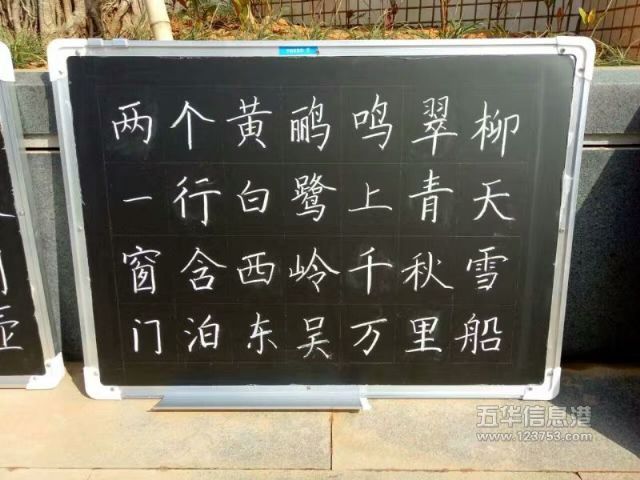 两个黄鹂鸣翠柳
一行白鹭上青天
窗含西岭千秋雪
门泊东吴万里船
五华信息港
www.123753.com